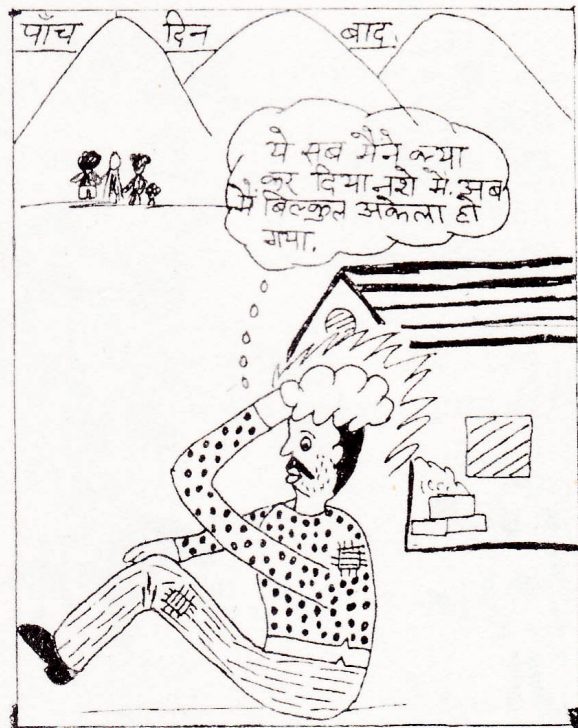 पाँच दिन बाद.
ये सब मैने क्या
कर दिया नशे में. अब
मैं बिल्कुल अकेला हो
गया.